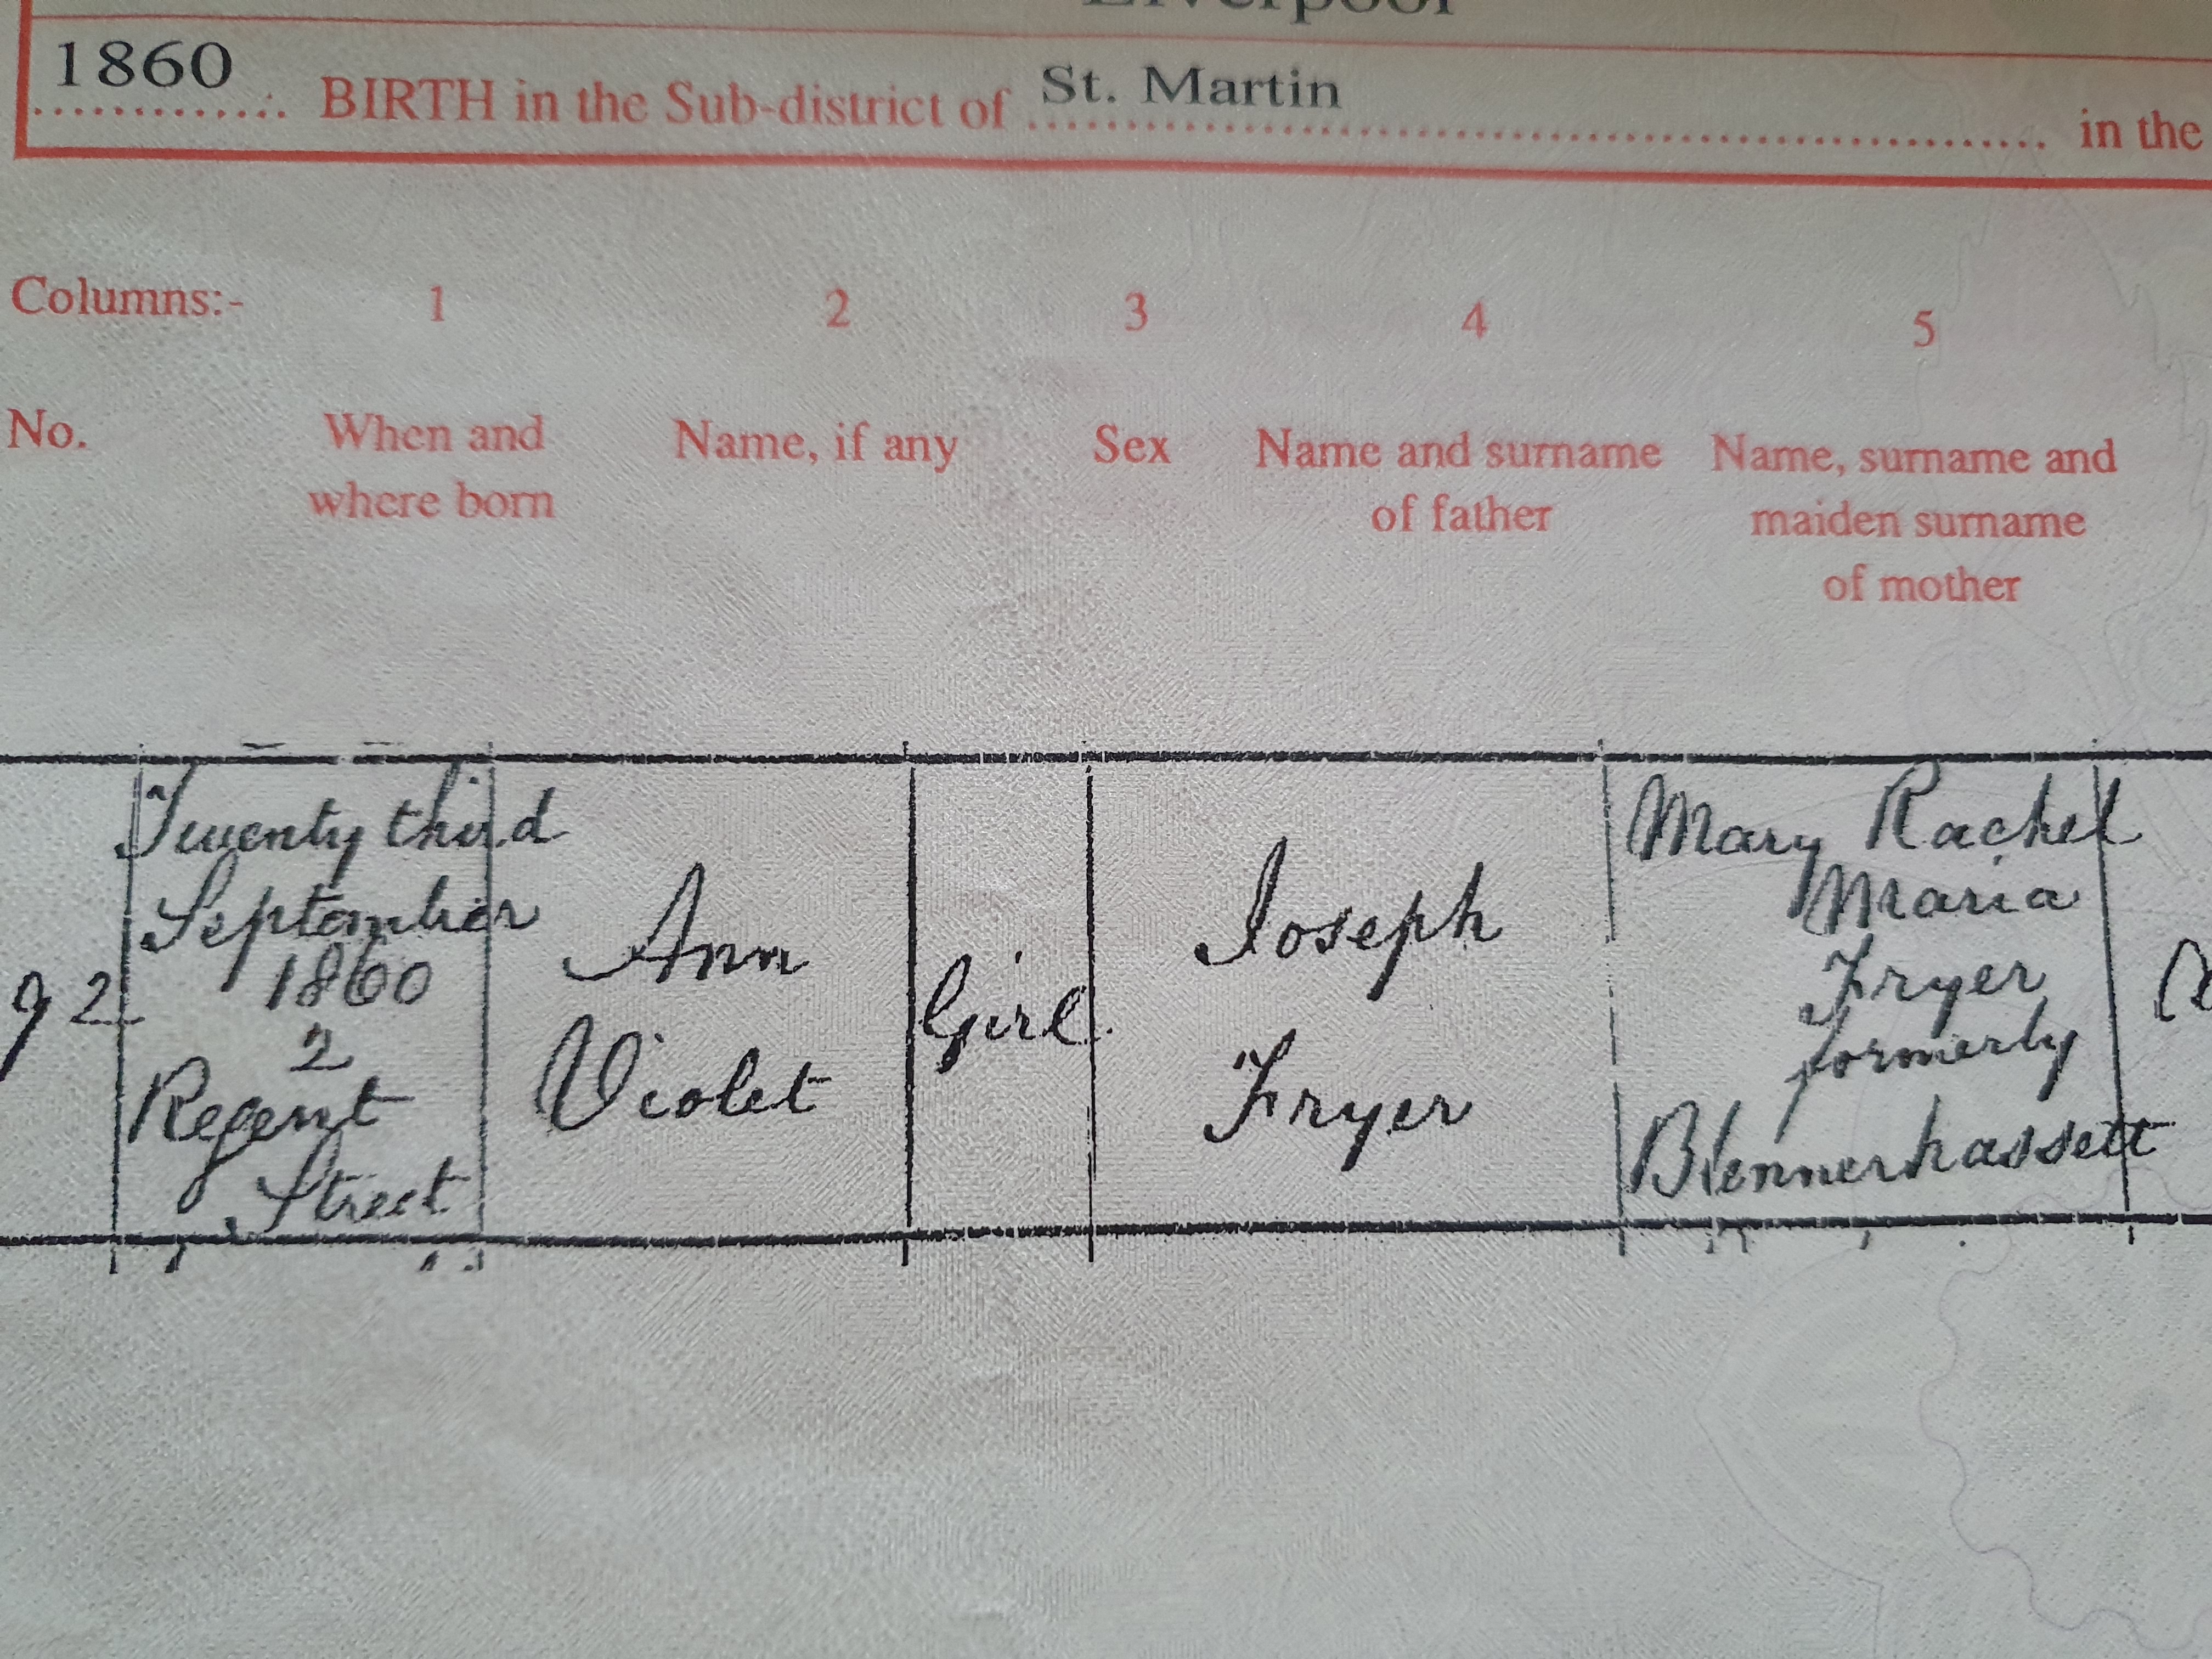 Liverpool
1860 BIRTH in the Sub-district of St. Martin in the
Columns:- 1 2 3 4 5
No. When and where born Name, if any Sex Name and surname of father Name, surname and maiden surname of mother
92
Twenty third
September
1860
2
Regent
Street
Ann
Violet
Girl
Joseph
Fryer
Mary Rachel
Maria
Fryer
formerly
Blennerhassett